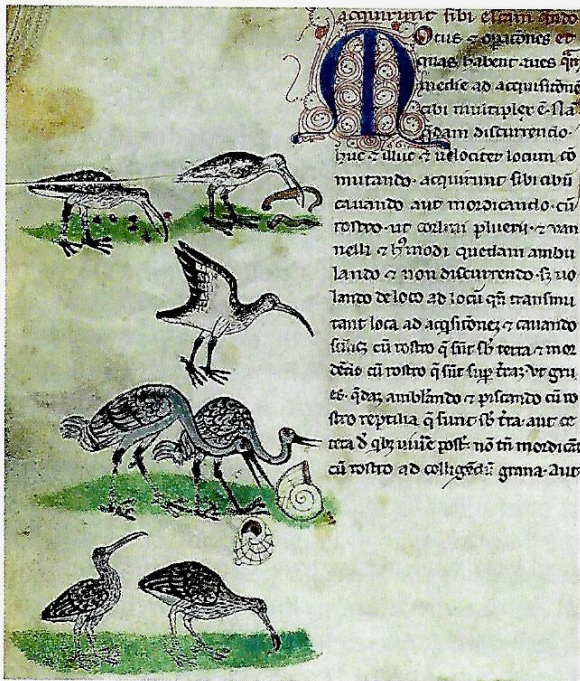 acquirunt sibi escam qñdo
Motus ⁊ opatões et
quas habent aues qñ
medie ad acquisitõne
cibi multiplex ē. Nã
q̃dam discurrendo.
huc ⁊ illuc ⁊ uelociter locum cõ
mutando. acquirunt sibi cibũ
cauando aut mordicando. cũ
rostro. ut corlrai pluerii. ⁊ van
nelli ⁊ hꝰmodi quedam ambu
lando ⁊ non discurrendo. sꝫ uo
lando de loco ad locũ qñ transmu
tant loca ad acq̃sitõnez ⁊ cauando
cũ rostro q̃ sũt sƀ terra ⁊ mor
dẽdo cũ rostro q̃ sũt sup̃ t̃raz. vt gru
es. q̃daz ambl̃ando ⁊ piscando cũ ro
stro reptilia q̃ sunt sƀ t̃ra aut ce
teta ð qbꝫ uiũe poss̃t. nõ tñ mordicãt
cũ rostro ad collig̃edũ grana. Aut